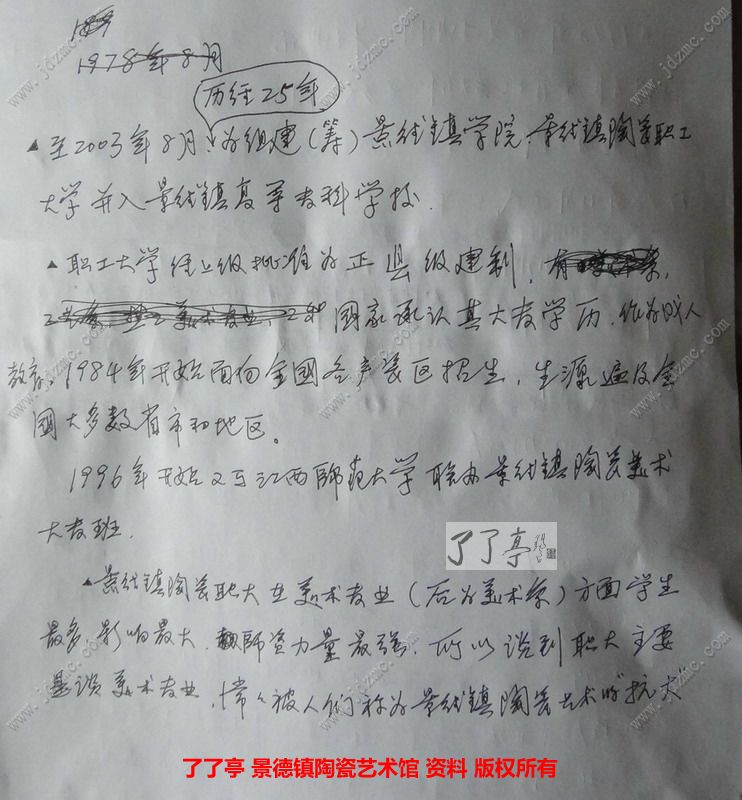 1978年8月
历经25年
▲至2003年8月为组建(筹)景德镇学院,景德镇陶瓷职工
大学并入景德镇高等专科学校.
▲职工大学经上级批准为正县级建制,
国家承认其大专学历,作为成人
教育,1984年开始面向全國各产瓷区招生,生源遍及全
國大多数省市和地区。
1996年开始又与江西師范大学联办景德镇陶瓷美术
大专班.
了了亭
▲景德镇陶瓷职大在美术专业(后为美术系)方面学生
最多,影响最大,師资力量最强,所以谈到职大主要
是谈美术专业,常々被人们称为景德镇陶瓷艺术的"抗大"
了了亭 景德镇陶瓷艺术馆 资料 版权所有
www.jdzmc.com